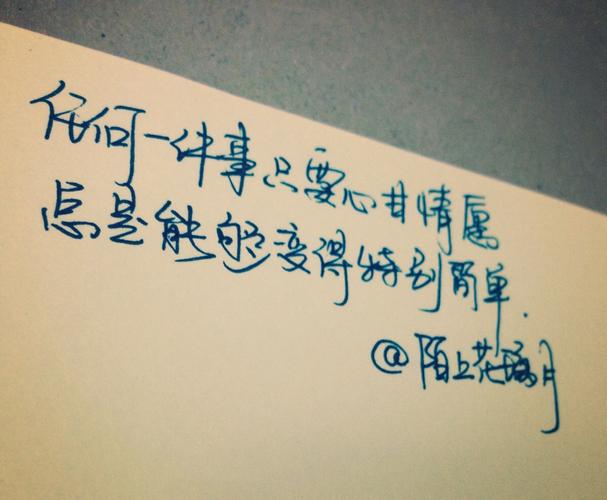 任何一件事只要心甘情愿
总是能够变得特别简单.
@陌上花瑶月